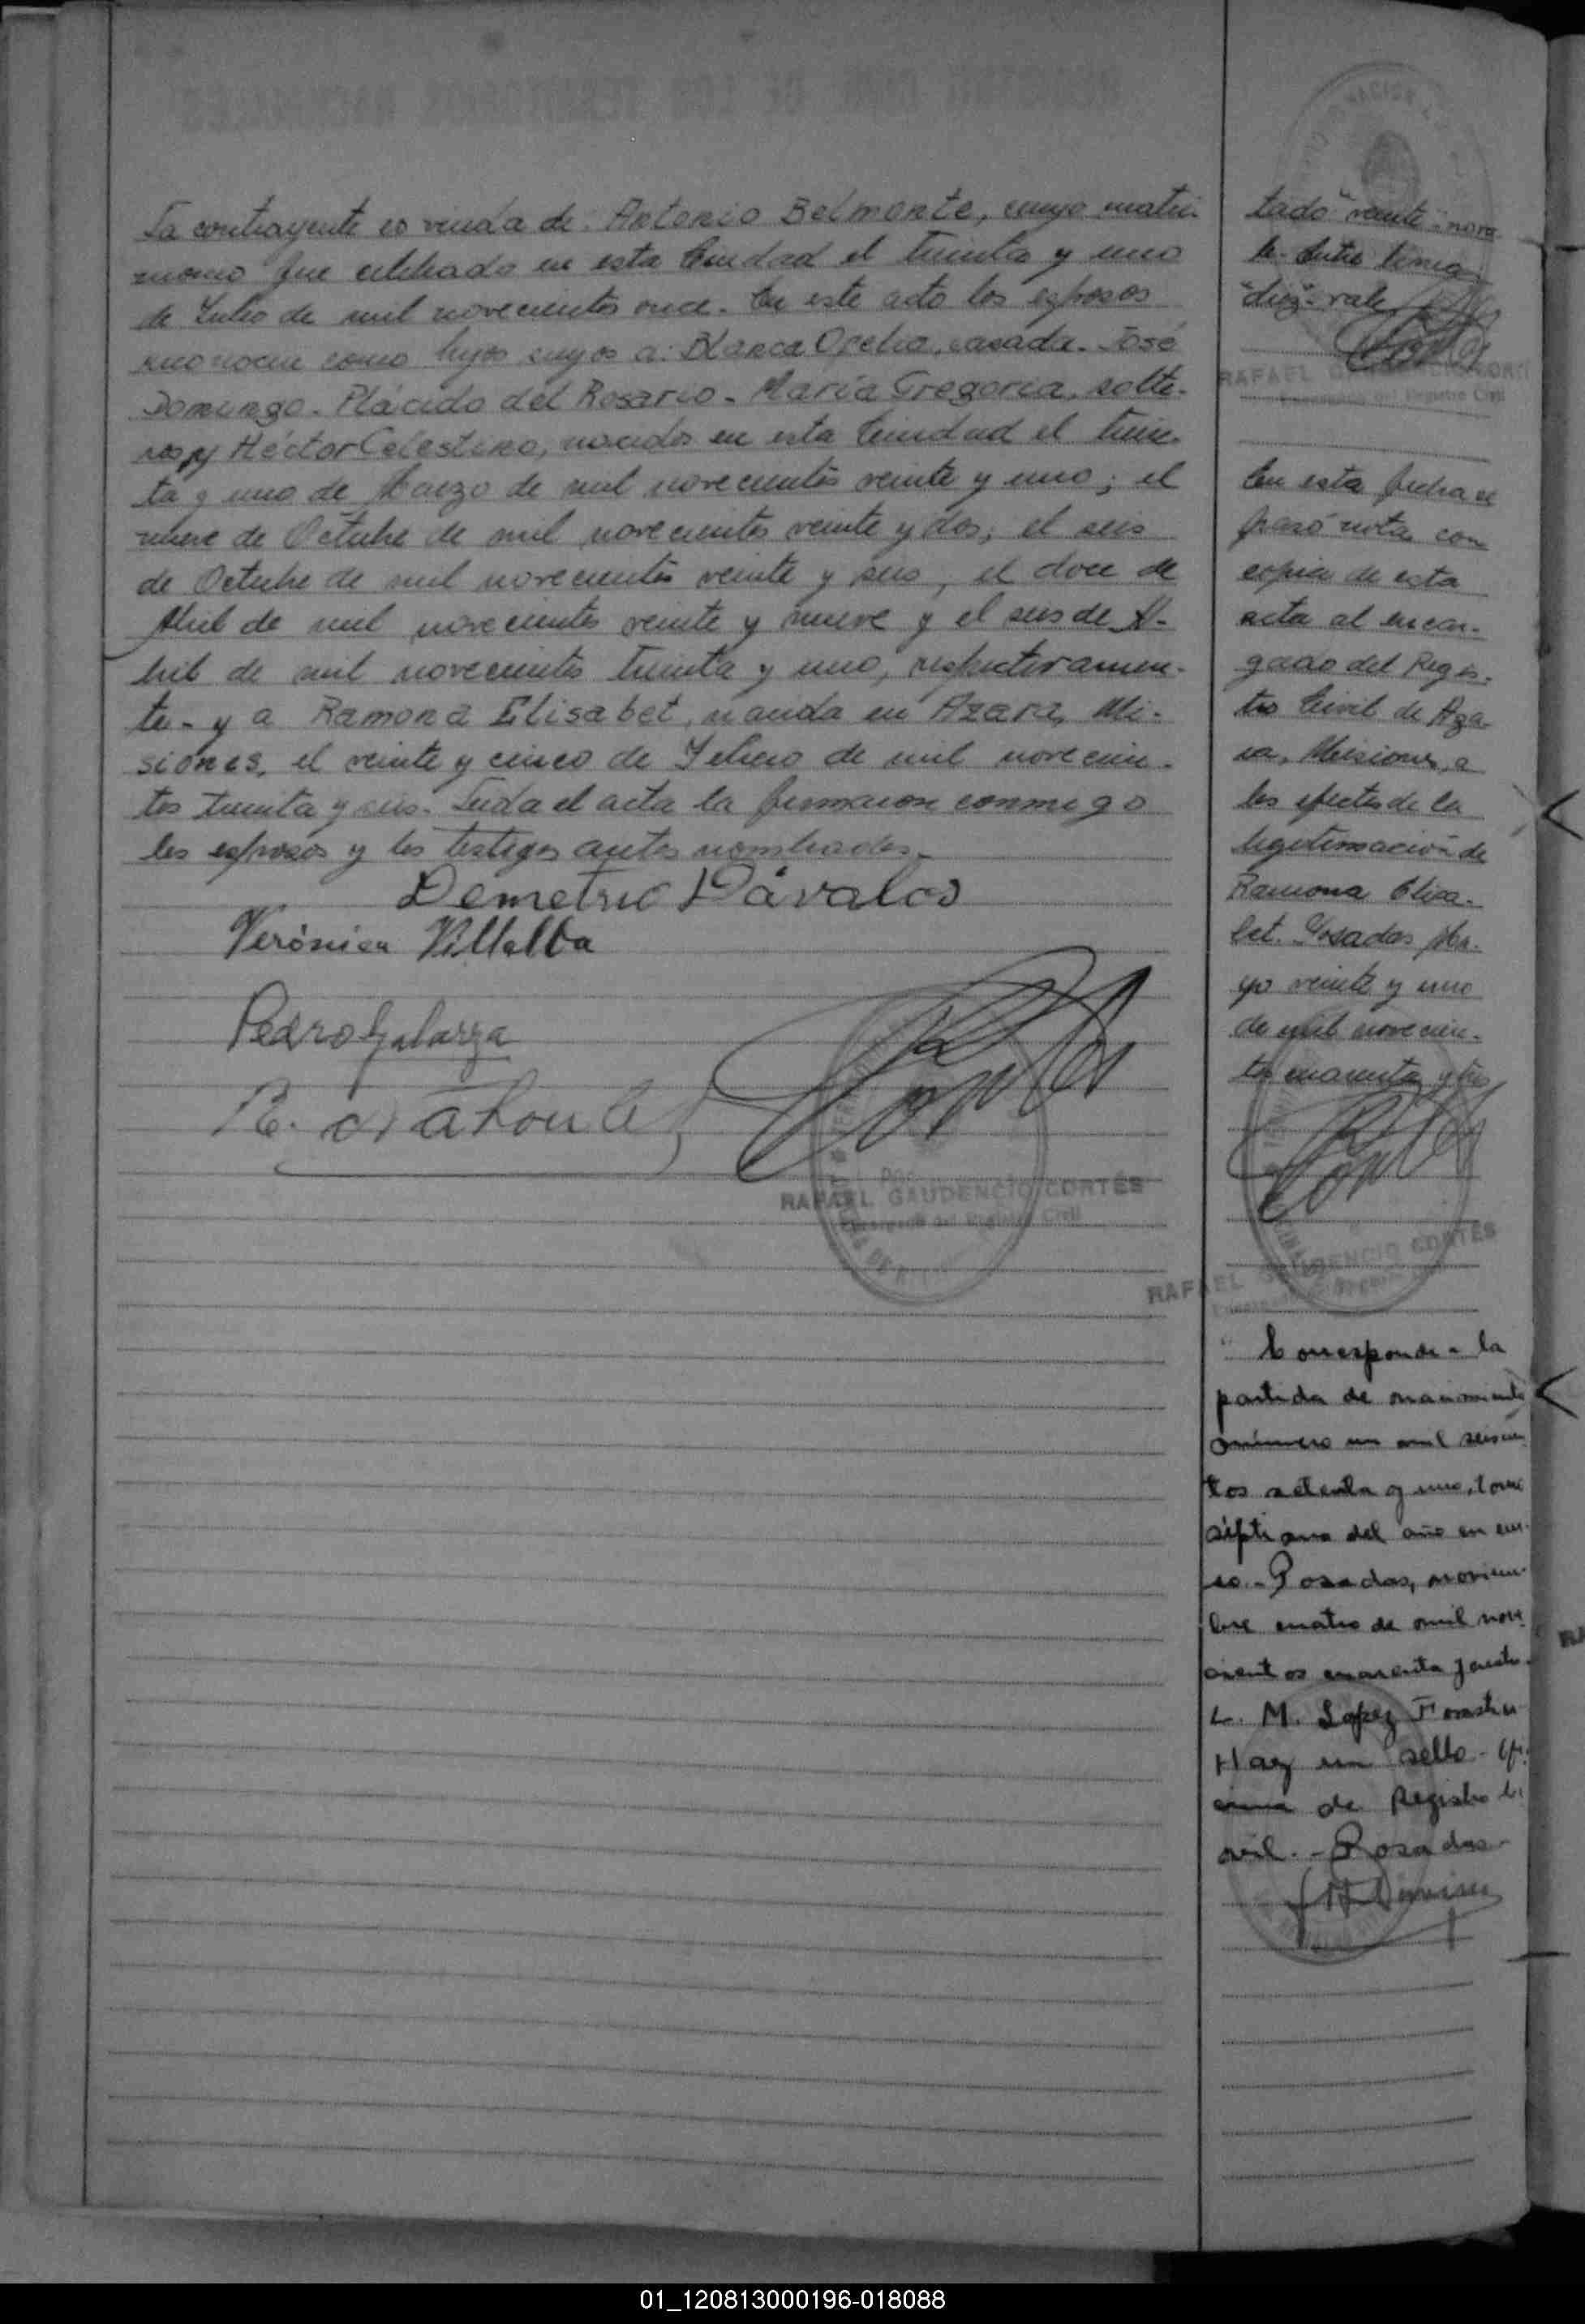 La contrayente es viuda de: Antonio Belmonte, cuyo matri-
monio fue celebrado en esta Ciudad el treinta y uno
de Julio de mil novecientos once. En este acto los esposos
reconocen como hijos suyos a: Blanca Ofelia, casada. José
Domingo. Plácido del Rosario. María Gregoria, solte-
ros y Héctor Celestino, nacidos en esta Ciudad el trein-
ta y uno de Marzo de mil novecientos veinte y uno; el
nueve de Octubre de mil novecientos veinte y dos; el seis
de Octubre de mil novecientos veinte y seis, el doce de
Abril de mil novecientos veinte y nueve y el seis de A-
bril de mil novecientos treinta y uno, respectivamen-
te- y a Ramona Elisabet, nacida en Azara, Mi-
siones, el veinte y cinco de Febrero de mil novecien-
tos treinta y seis. Leida el acta la firmaron conmigo
los esposos y los testigos antes nombrados.
Demetrio Dávalos
Verónica Villalba
Pedro Galarza
RAFAEL GAUDENCIO CORTÉS
Encargado del Registro Civil
tado "veinte"- no va-
le. Entre lineas
"diez"- vale
RAFAEL GAUDENCIO CORTÉS
Encargado del Registro Civil
En esta fecha se
pasó nota con
copia de esta
acta al encar-
gado del Regis-
tro Civil de Aza-
ra, Misiones, a
los efectos de la
legitimación de
Ramona Elisa-
bet. Posadas, Ma-
yo veinte y uno
de mil novecien-
tos cuarenta y tres
RAFAEL GAUDENCIO CORTÉS
Corresponde a la
partida de nacimiento
número un mil seiscien
tos setenta y uno, tomo
séptimo del año en cur-
so.- Posadas, noviem-
bre cuatro de mil nove
cientos cuarenta y cuatro.
L. M. Lopez
Hay un sello- Ofi
cina de Registro Ci
vil.- Posadas-
01_120813000196-018088